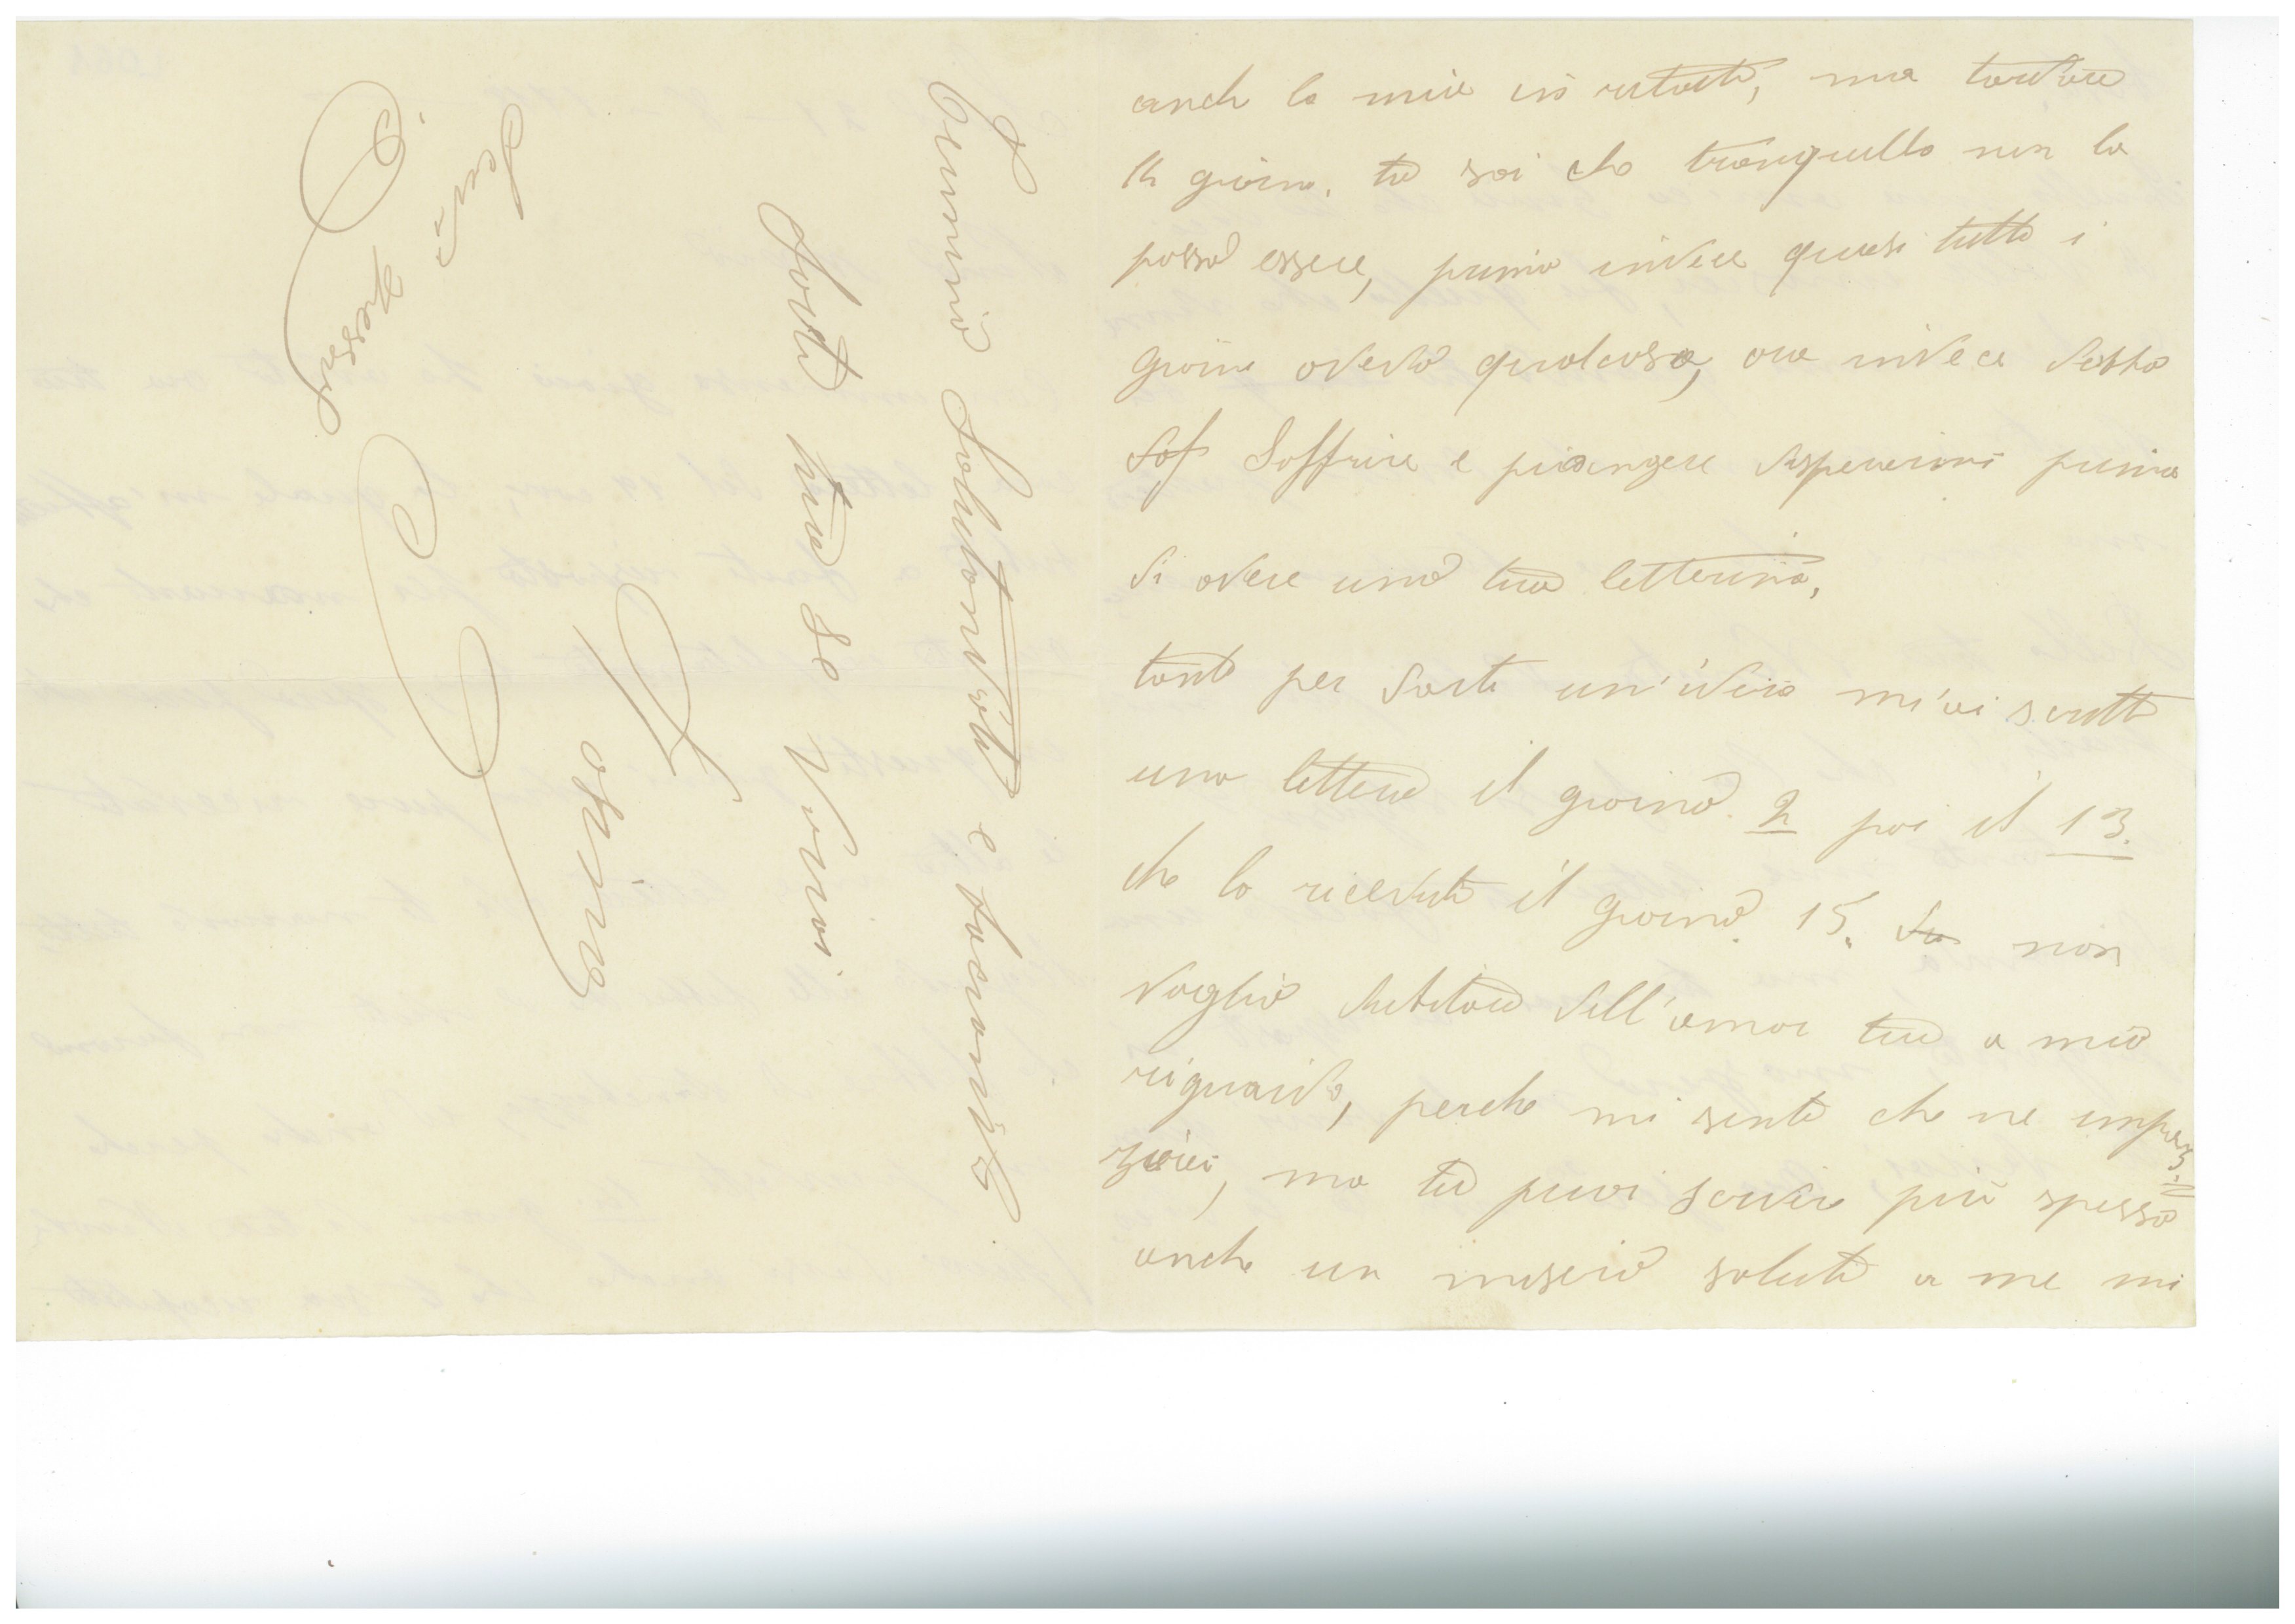 anche la mia in ritardo, ma tardare
14 giorni. tu sai che tranquilla non la
posso essere, prima invece quasi tutti i
giorni avevo qualcosa, ora invece debbo
Sof Soffrire e piangere dispiaceri prima
di avere una tua letterina,
tanto per darti un'idea m'ai scritto
una lettera il giorno 2 poi il 13.
che la ricevuta il giorno 15. non
voglio dubitare dell'amor tuo a mio
riguardo, perche mi sento che ne impaz=
zirei, ma tu puoi scrivere più spesso
anche un misero saluto a me mi
Termino salutandoti e baciandoti
sono tua se vorai